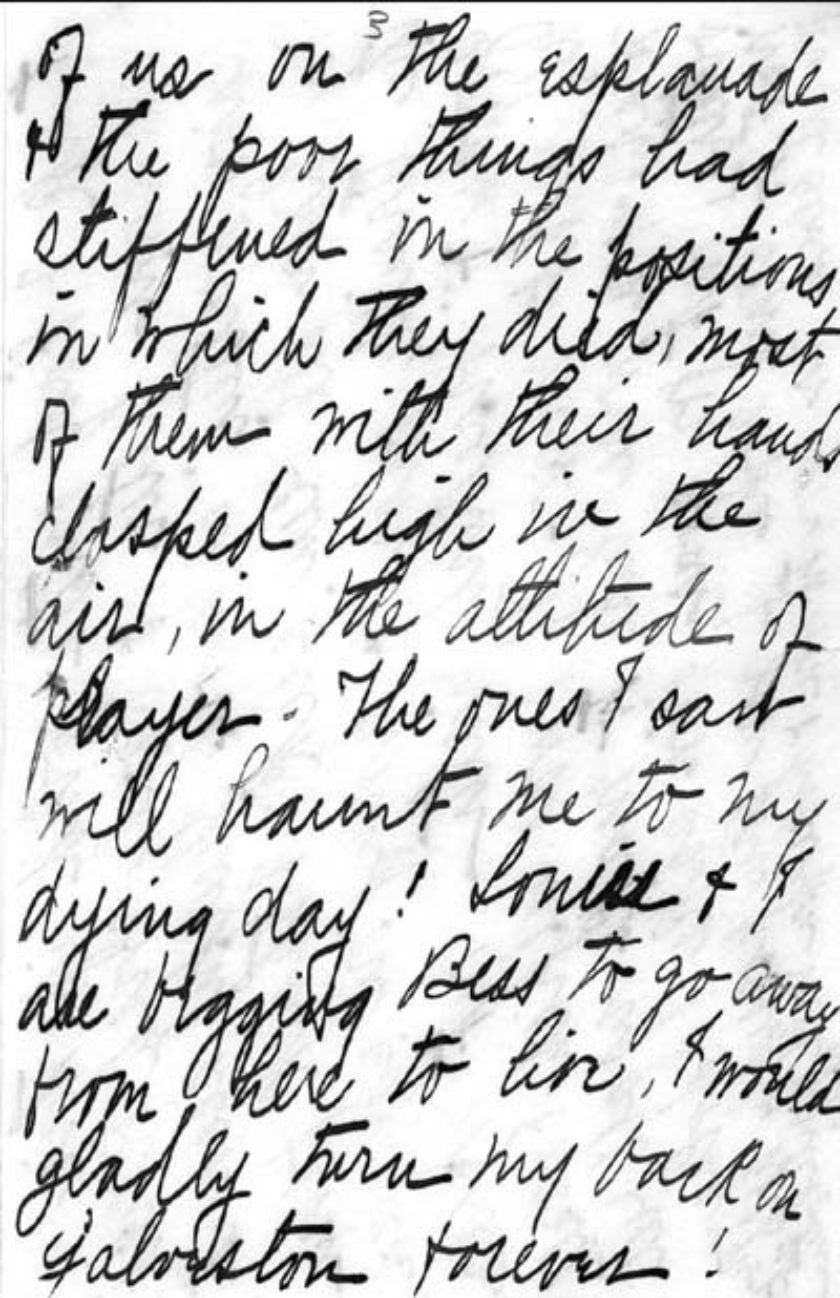 3
of us on the esplanade
& the poor things had
stiffened in the positions
in which they died, most
of them with their hands
clasped high in the
air, in the attitude of
prayer. The ones I saw
will haunt me to my
dying day! Louise & I
are begging Bess to go away
from here to live, I would
gladly turn my back on
Galveston forever!